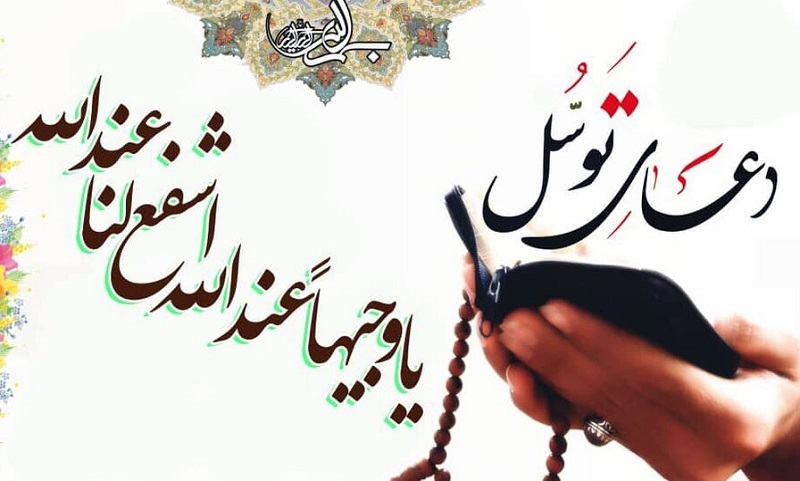 بسم الله الرحمن الرحیم
دعای توسّل
یا وجیهاً عند الله اشفع لنا عند الله